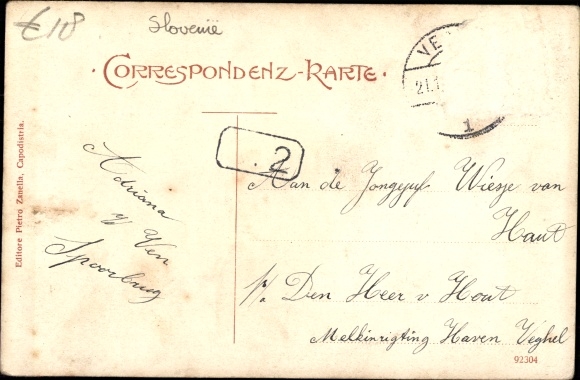 €18
Slovenië
CORRESPONDENZ-KARTE.
VE
21.1
1
2
Editore Pietro Zanella, Capodistria.
Adriana
v Ven
Spoorbrug
Aan de Jongejuf Wiesje van
Hout
p/a Den Heer v Hout
Melkinrigting Haven Veghel
92304